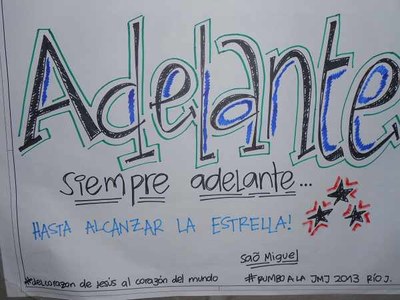 Adelante
siempre adelante...
HASTA ALCANZAR LA ESTRELLA!
Saõ Miguel
corazon de Jesús al corazón del mundo
#RUMBO A LA JMJ 2013 RÍO J.